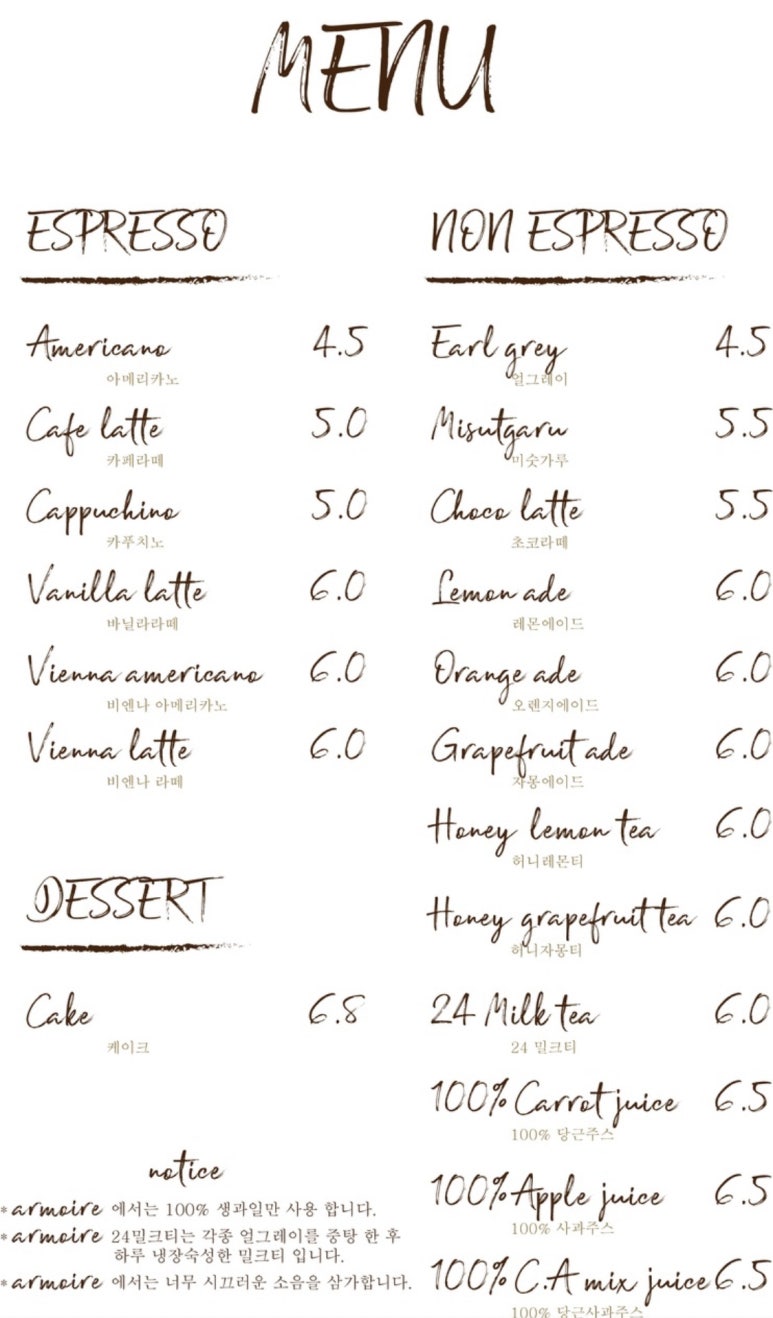 MENU
ESPRESSO
Americano 4.5
아메리카노
Cafe latte 5.0
카페라떼
Cappuchino 5.0
카푸치노
Vanilla latte 6.0
바닐라라떼
Vienna americano 6.0
비엔나 아메리카노
Vienna latte 6.0
비엔나 라떼
DESSERT
Cake 6.8
케이크
notice
*armoire 에서는 100% 생과일만 사용 합니다.
*armoire 24밀크티는 각종 얼그레이를 중탕 한 후
하루 냉장숙성한 밀크티 입니다.
*armoire 에서는 너무 시끄러운 소음을 삼가합니다.
NON ESPRESSO
Earl grey 4.5
얼그레이
Misutgaru 5.5
미숫가루
Choco latte 5.5
초코라떼
Lemon ade 6.0
레몬에이드
Orange ade 6.0
오렌지에이드
Grapefruit ade 6.0
자몽에이드
Honey lemon tea 6.0
허니레몬티
Honey grapefruit tea 6.0
허니자몽티
24 Milk tea 6.0
24 밀크티
100% Carrot juice 6.5
100% 당근주스
100% Apple juice 6.5
100% 사과주스
100% C.A mix juice 6.5
100% 당근사과주스